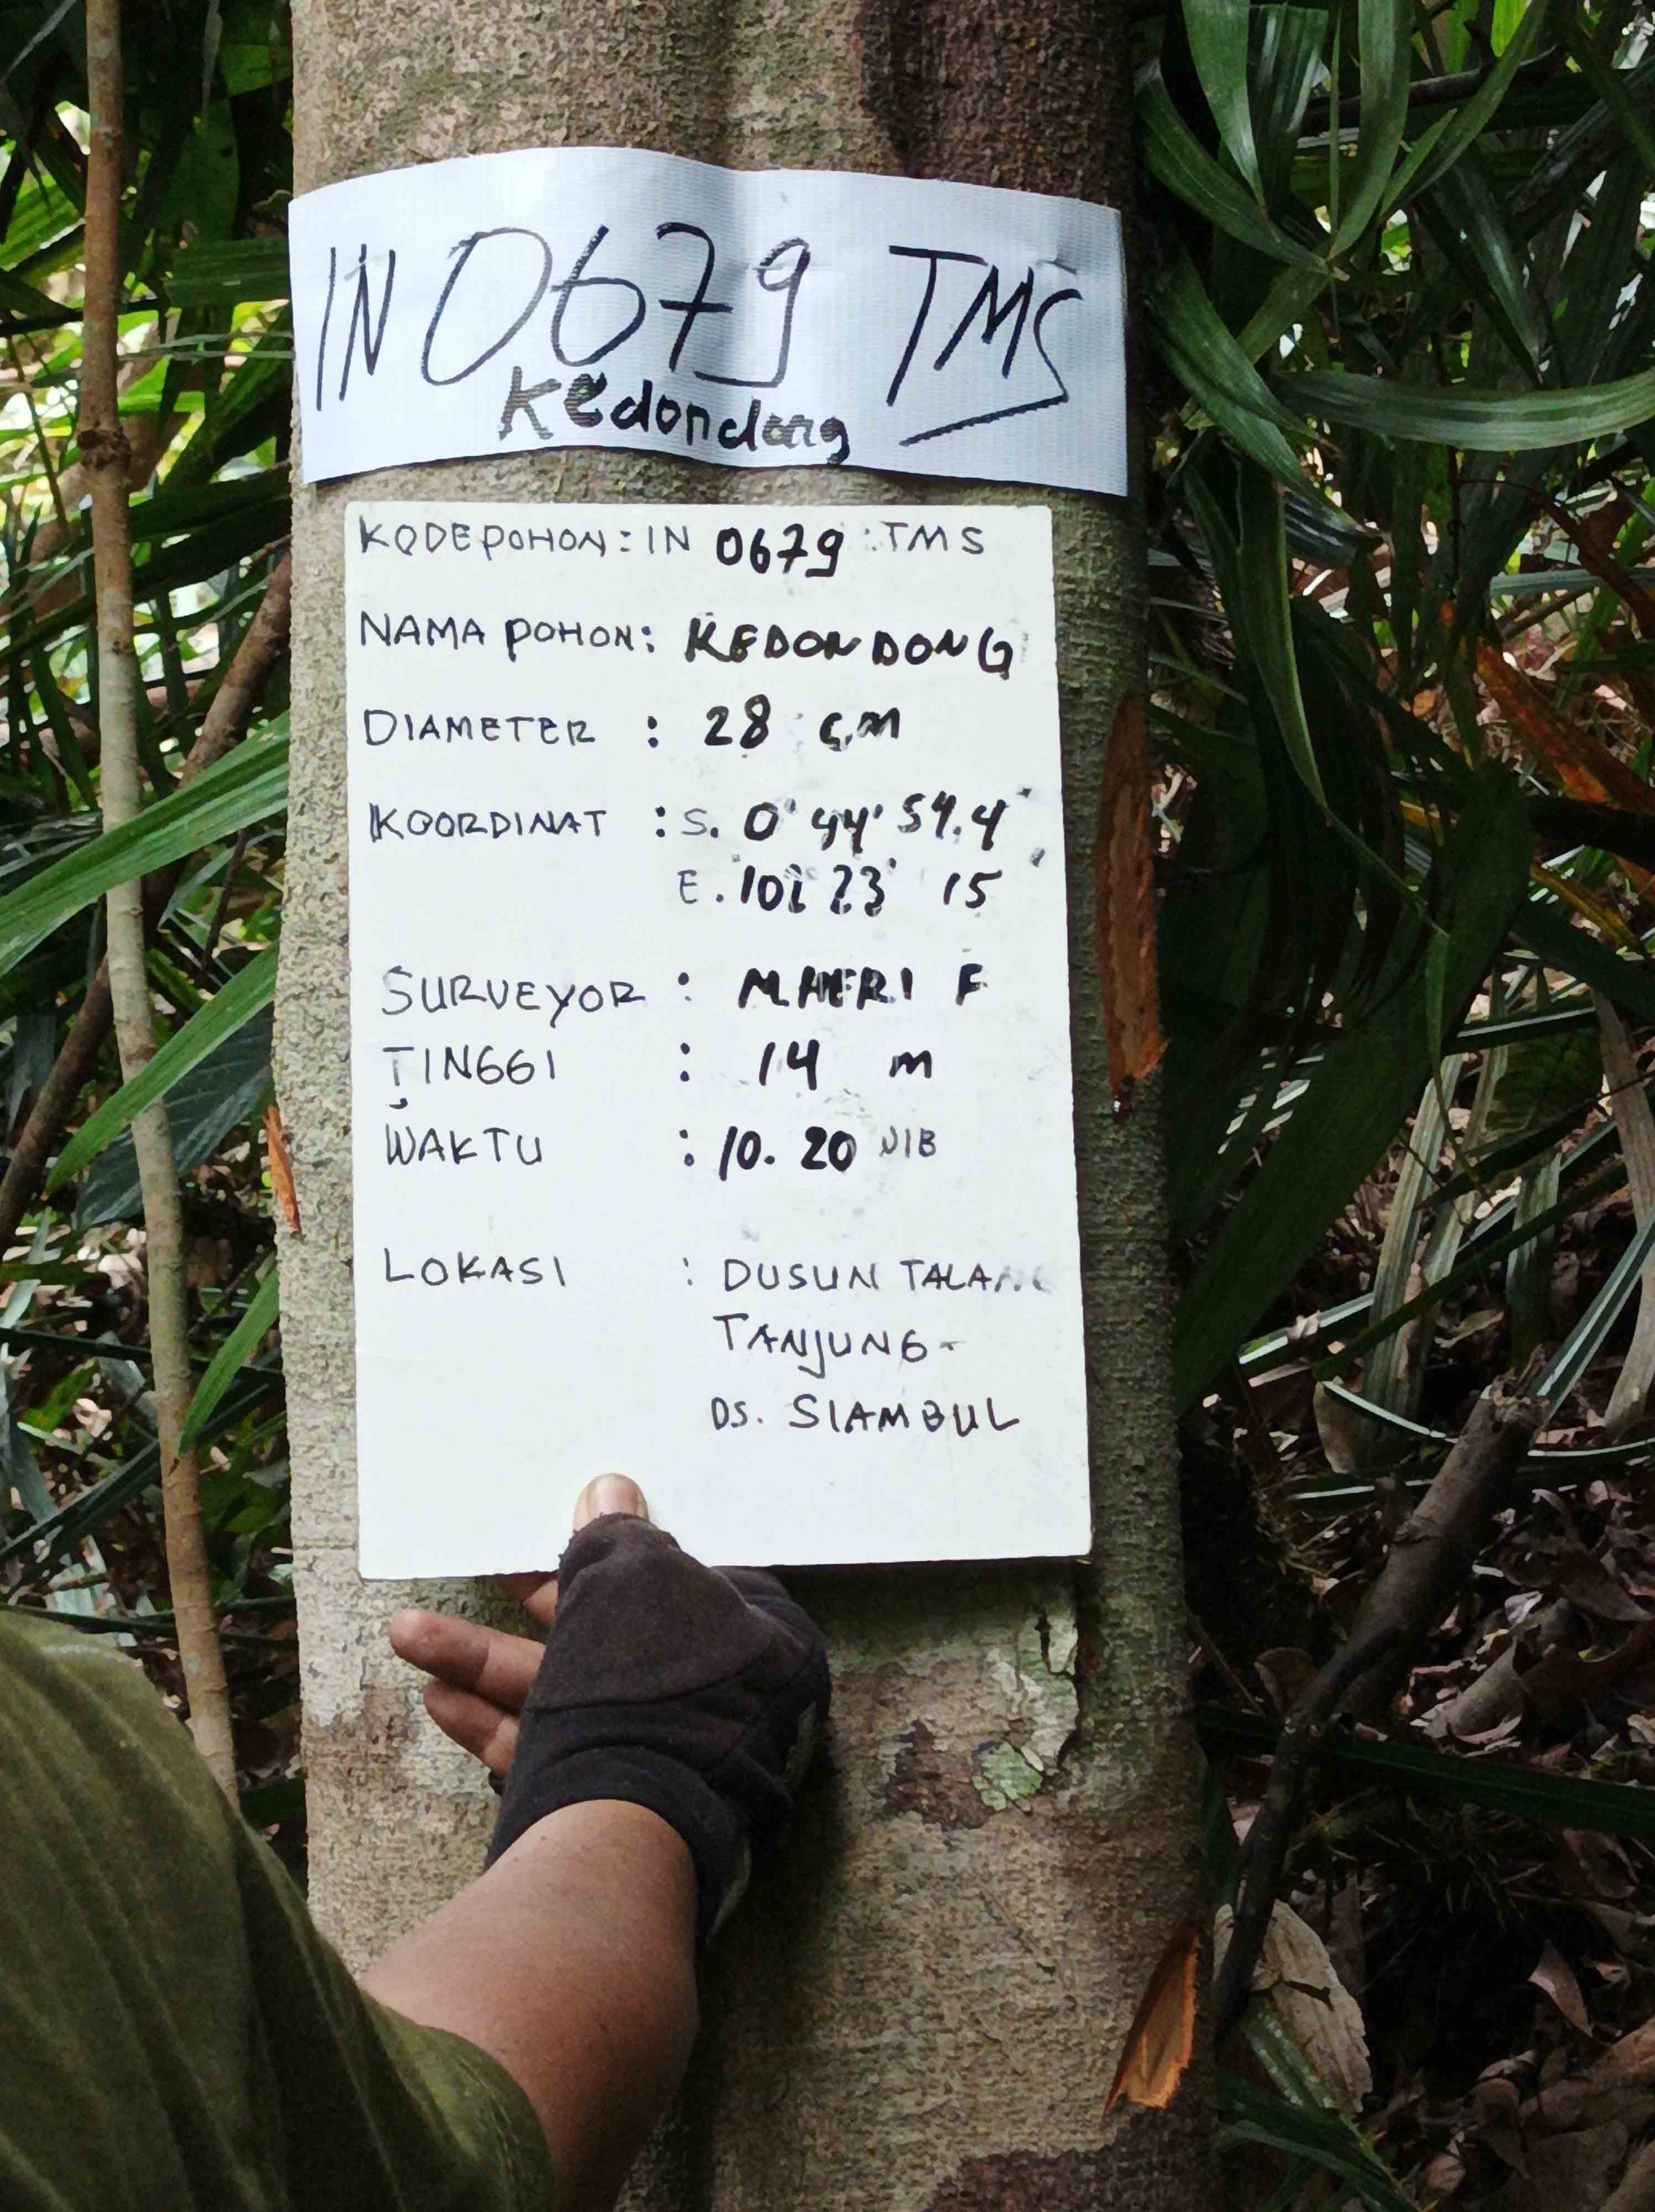 IN 0679 TMS
Kedondong
KODE POHON : IN 0679 : TMS
NAMA POHON : KEDONDONG
DIAMETER : 28 cm
KOORDINAT : S. 0° 44' 54.4"
E. 102 23' 15
SURVEYOR : M HERI F
TINGGI : 14 m
WAKTU : 10.20 WIB
LOKASI : DUSUN TALANG
TANJUNG
DS. SIAMBUL